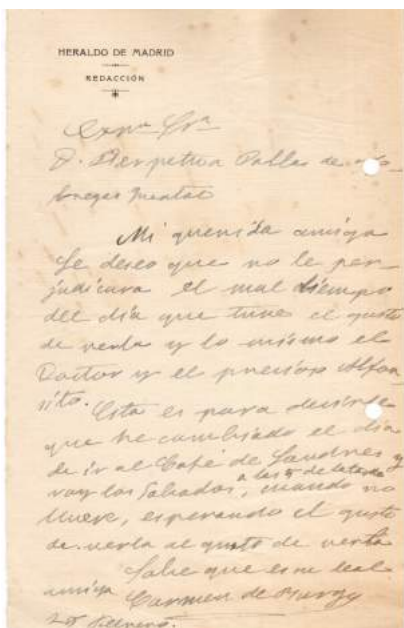 HERALDO DE MADRID
REDACCIÓN
Exmª Srª
D. Perpetua Pallas de
Mi querida amiga
Le deseo que no le per-
judicara el mal tiempo
del día que tuve el gusto
de verla y lo mismo el
Doctor y el precioso Alfon-
sito.
Esta es para decirle
que he cambiado el día
de ir al Café de Londres y
voy los Sabados, a las 5 de la tarde cuando no
llueve, esperando el gusto
de verla al gusto de verla
Sabe que es su leal
amiga Carmen de Burgos
Febrero.